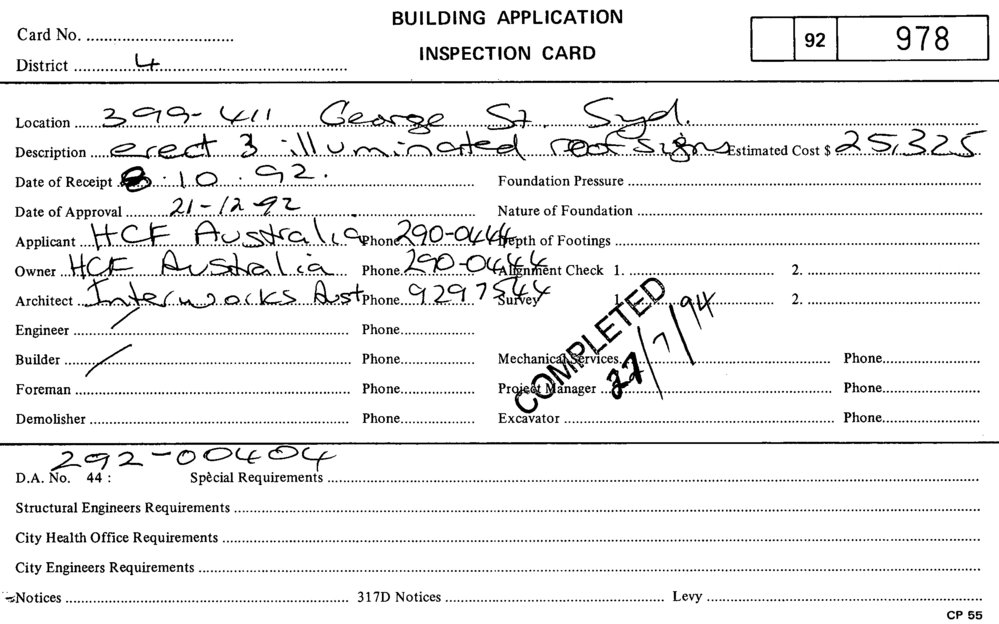 BUILDING APPLICATION
INSPECTION CARD
Card No.
District 4
92 978
Location 399-411 George St. Syd.
Description erect 3 illuminated roof signs Estimated Cost $ 25,325
Date of Receipt 8.10.92. Foundation Pressure
Date of Approval 21-12-92 Nature of Foundation
Applicant HCF Australia Phone 290-0444 Depth of Footings
Owner HCF Australia Phone 290-0444 Alignment Check 1. 2.
Architect Interworks Aust Phone 9297544 Survey 1. 2.
Engineer Phone
Builder Phone Mechanical Services Phone
Foreman Phone Project Manager Phone
Demolisher Phone Excavator Phone
COMPLETED
27/7/94
292-00404
D.A. No. 44 : Special Requirements
Structural Engineers Requirements
City Health Office Requirements
City Engineers Requirements
Notices 317D Notices Levy
CP 55